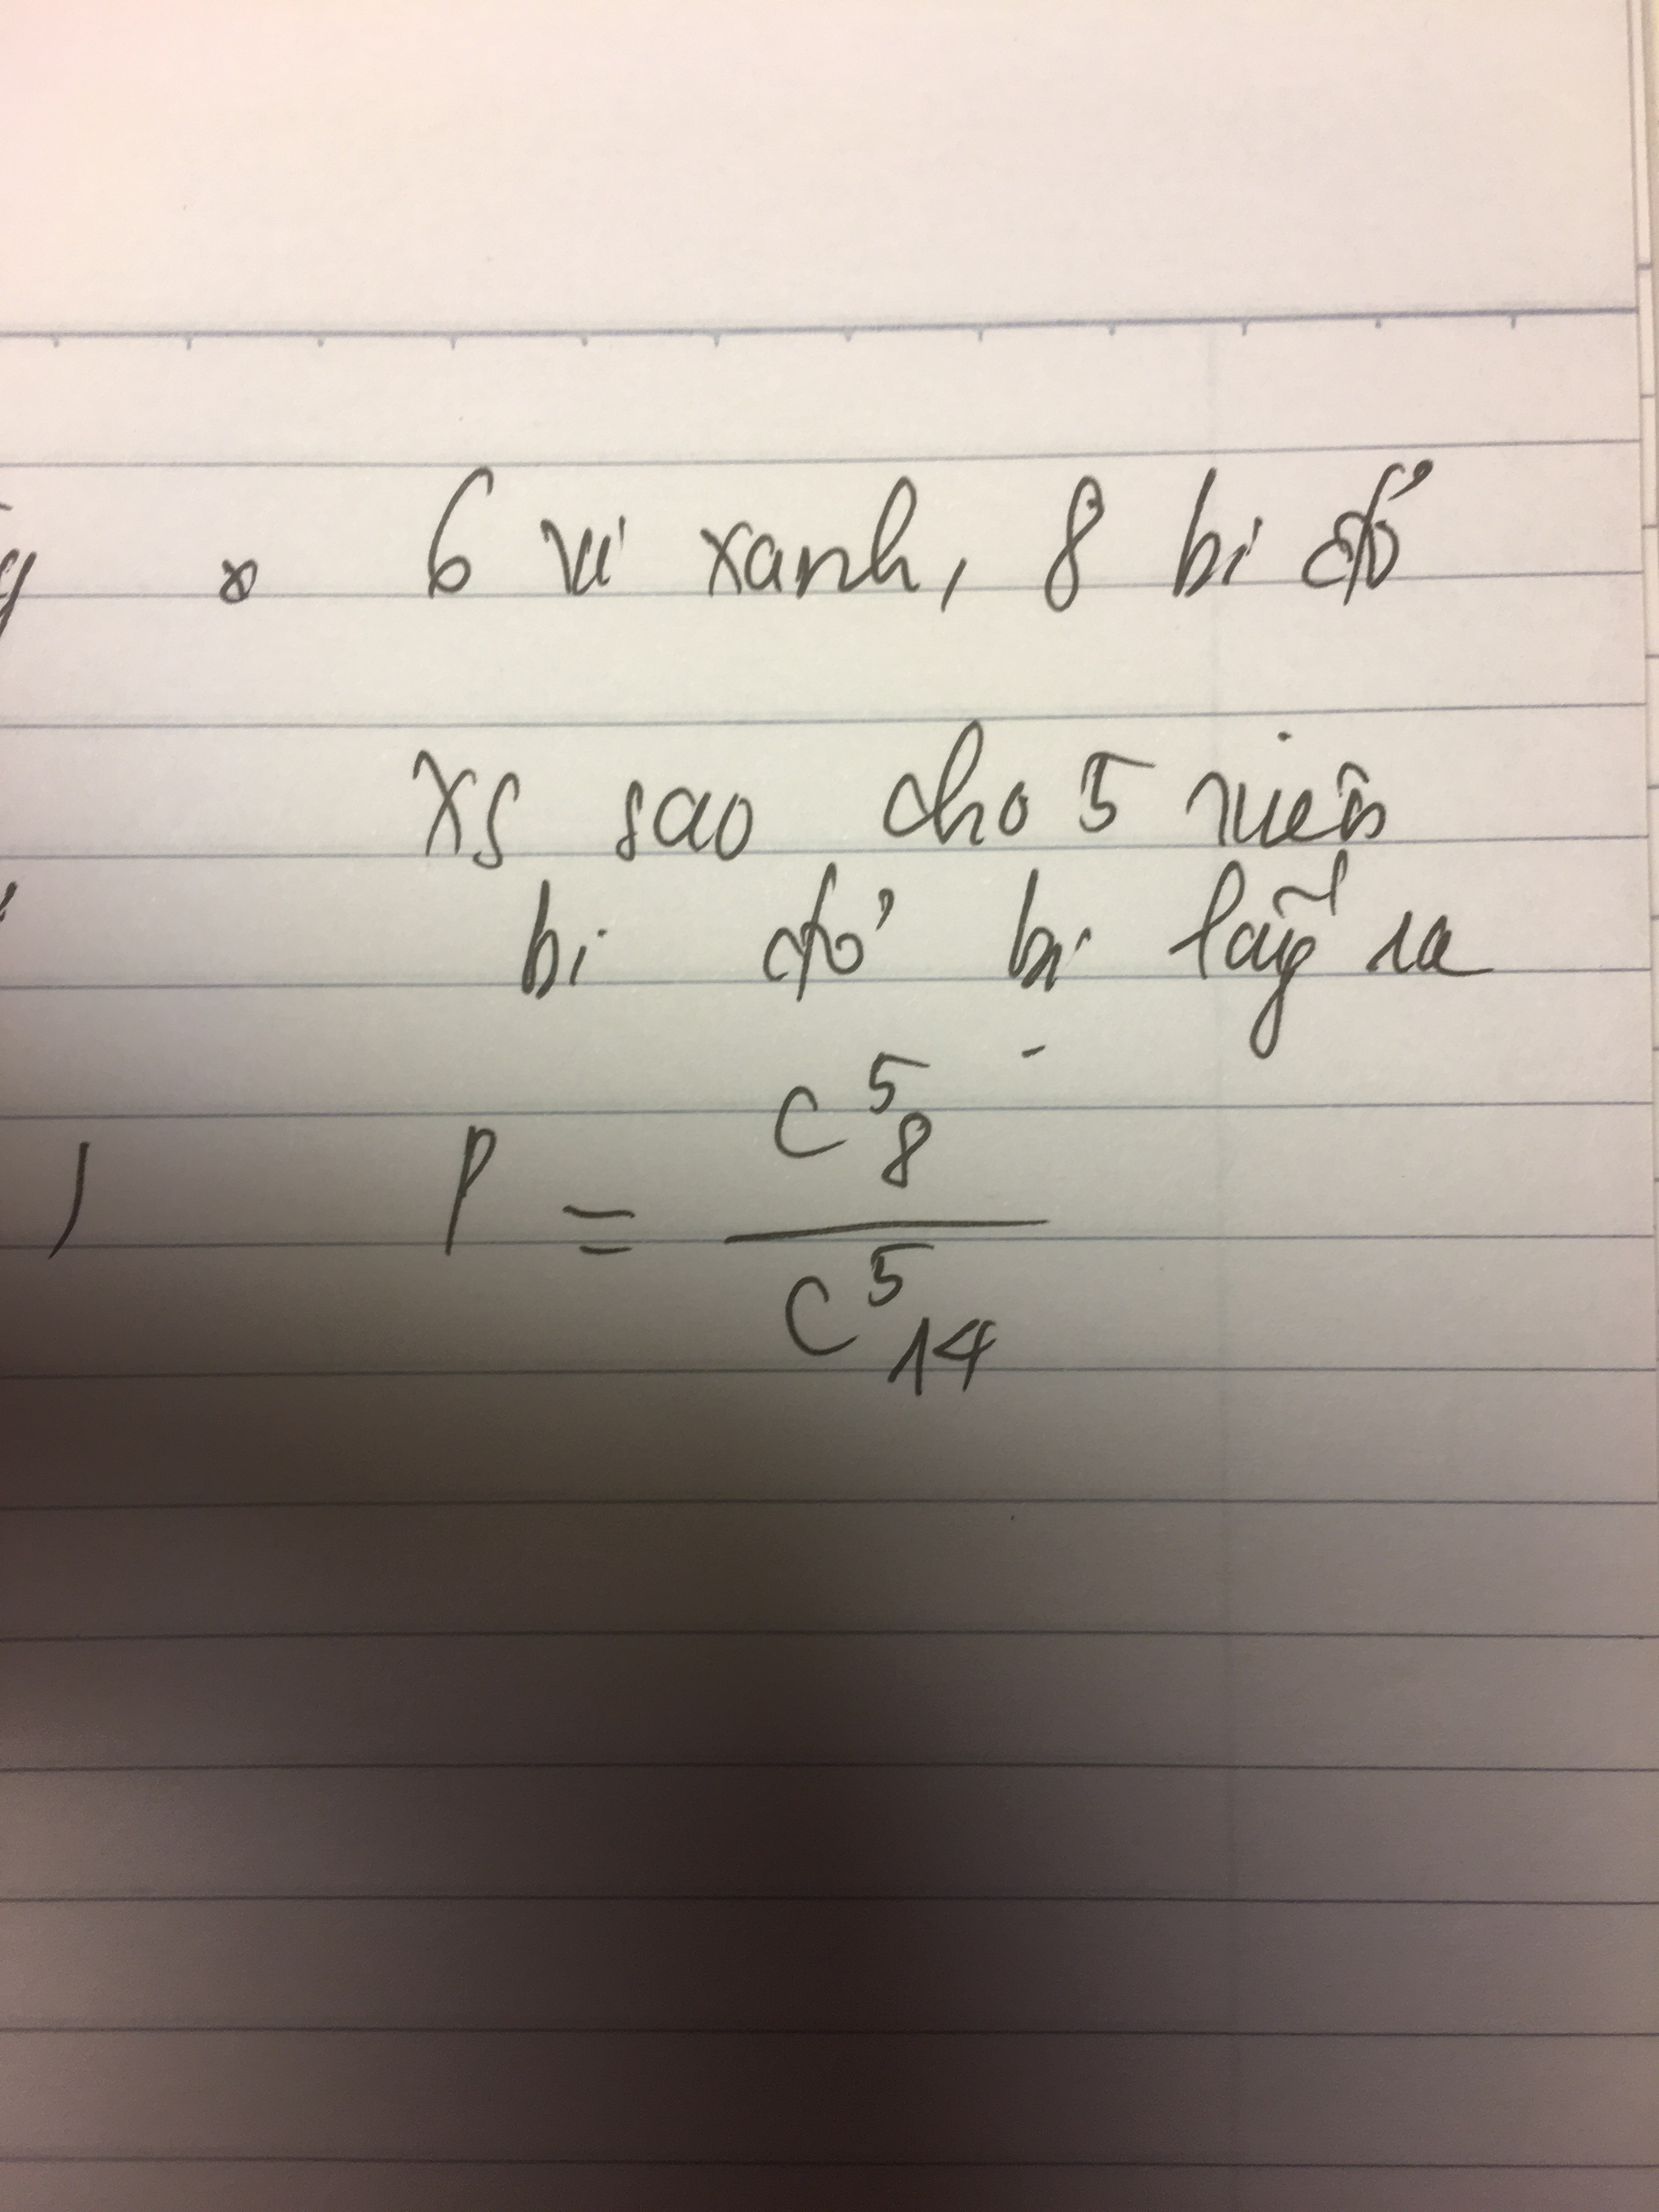 6 vi xanh, 8 bi đỏ
XS sao cho 5 viên
bi đỏ bị lấy ra
P = C⁵₈ / C⁵₁₄